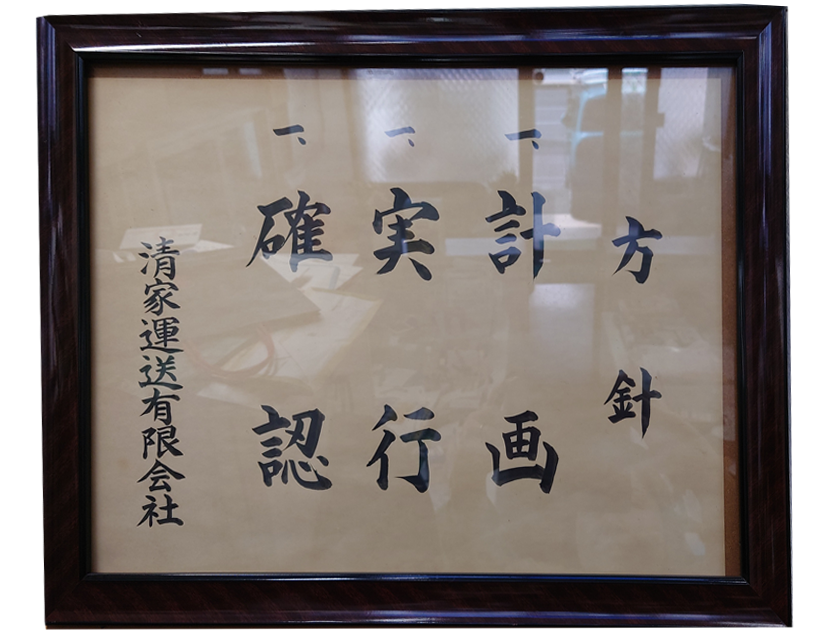 方針
一、計画
一、実行
一、確認
清家運送有限会社